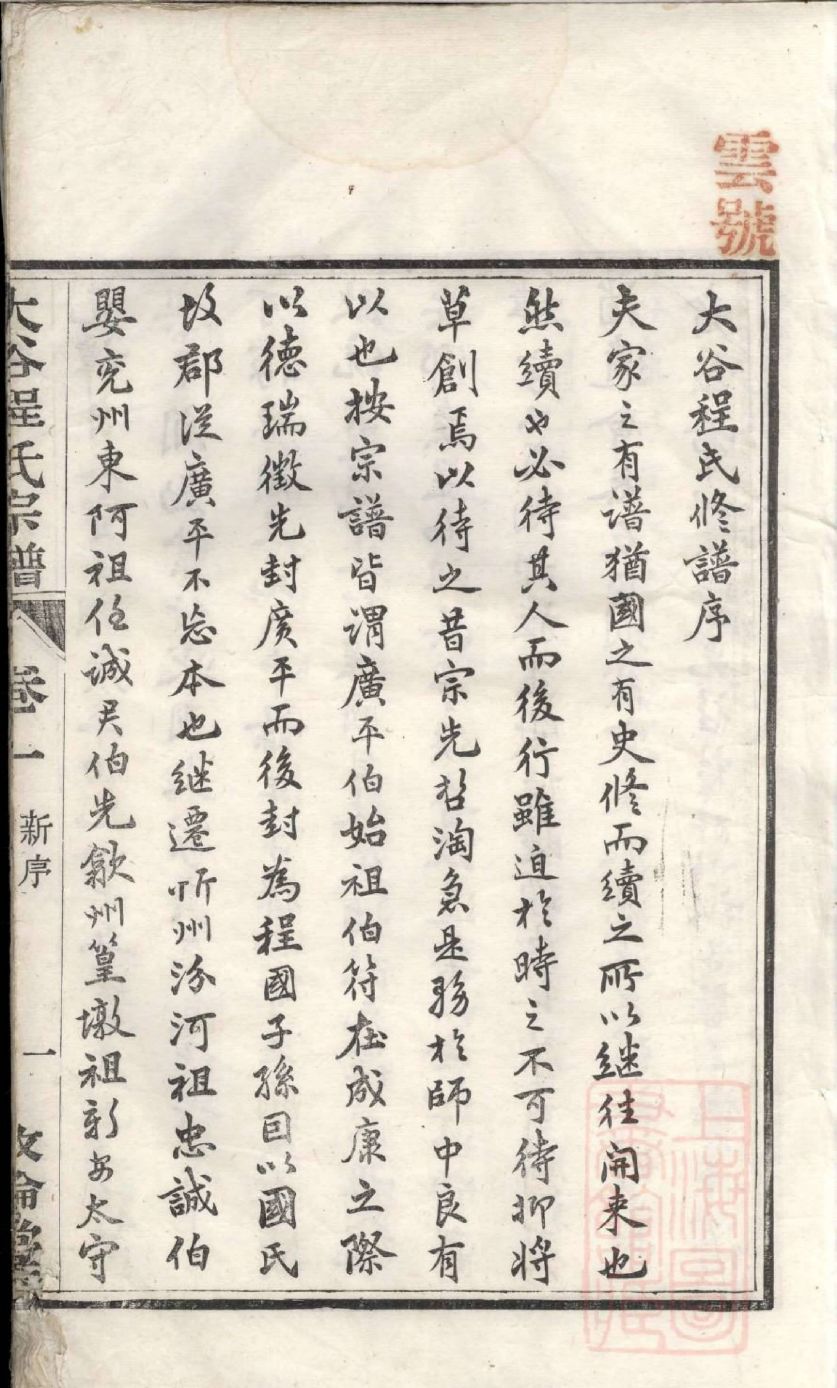 雲號
大谷程氏修譜序
夫家之有谱猶國之有史修而續之所以继往開来也
然續也必待其人而後行雖迫於時之不可待抑将
草創焉以待之昔宗先哲淘急是務於師中良有
以也按宗譜皆谓廣平伯始祖伯符在成康之際
以德瑞徵先封廣平而後封為程國子孫因以國氏
故郡從廣平不忘本也继遷忻州汾河祖忠誠伯
嬰兖州東阿祖任誠君伯先歙州篁墩祖新安太守
大谷程氏宗譜 卷一 新序 一 敦倫堂
上海圖書館藏